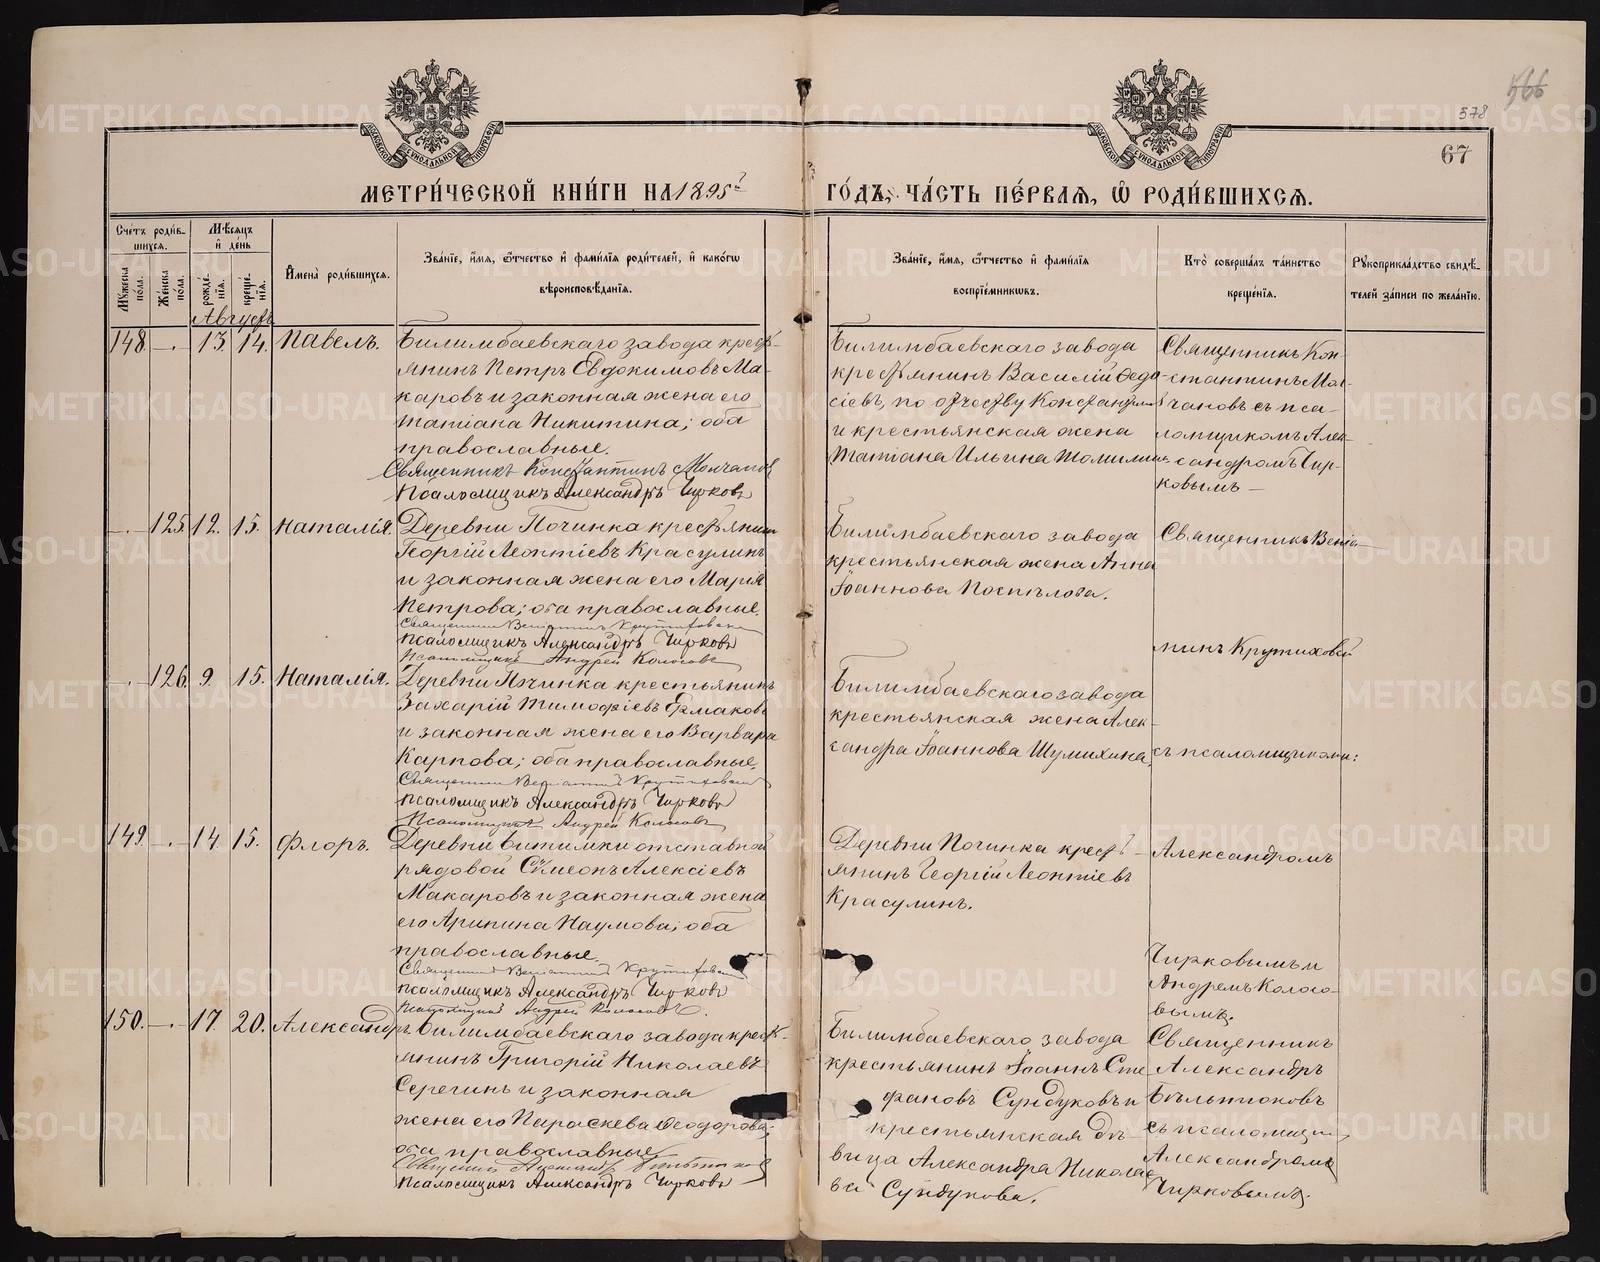 566
578
67
МЕТРИ́ЧЕСКОЙ КНИ́ГИ НА 1895 ГО́ДЪ, ЧА́СТЬ ПЕ́РВАЯ, Ѽ РОДИ́ВШИХСЯ.
Сче́тъ роди́вшихся.
Мѣ́сяцъ и де́нь
Му́жеска по́ла.
Же́нска по́ла.
рожде́нїя.
креще́нїя.
Имена̀ роди́вшихся.
Зва́нїе, и́мя, ѻ́тчество и фами́лїя роди́телей, и како́гѡ
вѣроисповѣ́данїя.
Зва́нїе, и́мя, ѻ́тчество и фами́лїя
воспрїе́мникѡвъ.
Кто̀ соверша́лъ та́инство
креще́нїя.
Рукоприкла́дство свидѣ́телей за́писи по жела́нїю.
Августъ
148. —.— 13. 14. Павелъ.
Билимбаевскаго завода кресть-
янинъ Петръ Евдокимовъ Ма-
каровъ и законная жена его
Татіана Никитина; оба
православные.
Священникъ Константинъ Молчановъ
Псаломщикъ Александръ Чирковъ
Билимбаевскаго завода
крестьянинъ Василій Ѳедо-
сіевъ, по отчеству
и крестьянская жена
Татіана Ильина
Священникъ Кон-
стантинъ Мол-
чановъ съ пса-
ломщикомъ Алек-
сандромъ Чир-
ковымъ —
—.— 125. 12. 15. Наталія.
Деревни Починка крестьянинъ
Георгій Леонтіевъ Красулинъ
и законная жена его Марія
Петрова; оба православные.
Священникъ Веніаминъ Крутиховскій
Псаломщикъ Александръ Чирковъ
Псаломщикъ Андрей Колосовъ
Билимбаевскаго завода
крестьянская жена Анна
Іоаннова Поспѣлова.
Священникъ Веніа-
минъ Крутиховскій
—.— 126. 9. 15. Наталія.
Деревни Починка крестьянинъ
Захарій Тимофіевъ Ермаковъ
и законная жена его Варвара
Карпова; оба православные.
Священникъ Веніаминъ Крутиховскій
Псаломщикъ Александръ Чирковъ
Псаломщикъ Андрей Колосовъ
Билимбаевскаго завода
крестьянская жена Алек-
сандра Іоаннова Шумихина
съ псаломщиками:
149. —.— 14. 15. Флоръ.
Деревни Битимки отставной
рядовой Сѵмеонъ Алексіевъ
Макаровъ и законная жена
его Арипина Наумова; оба
православные.
Священникъ Веніаминъ Крутиховскій
Псаломщикъ Александръ Чирковъ
Псаломщикъ Андрей Колосовъ.
Деревни Починка кресть-
янинъ Георгій Леонтіевъ
Красулинъ.
Александромъ
Чирковымъ и
Андреемъ Колосо-
вымъ.
150. —.— 17. 20. Александръ.
Билимбаевскаго завода кресть-
янинъ Григорій Николаевъ
Серегинъ и законная
жена его Параскева Ѳеодорова;
оба православные.
Священникъ Александръ Бѣльтюковъ
Псаломщикъ Александръ Чирковъ
Билимбаевскаго завода
крестьянинъ Іоаннъ Сте-
фановъ Сундуковъ и
крестьянская дѣ-
вица Александра Николае-
ва Сундукова.
Священникъ
Александръ
Бѣльтюковъ
съ псаломщик
Александромъ
Чирковымъ.
METRIKI.GASO-URAL.RU